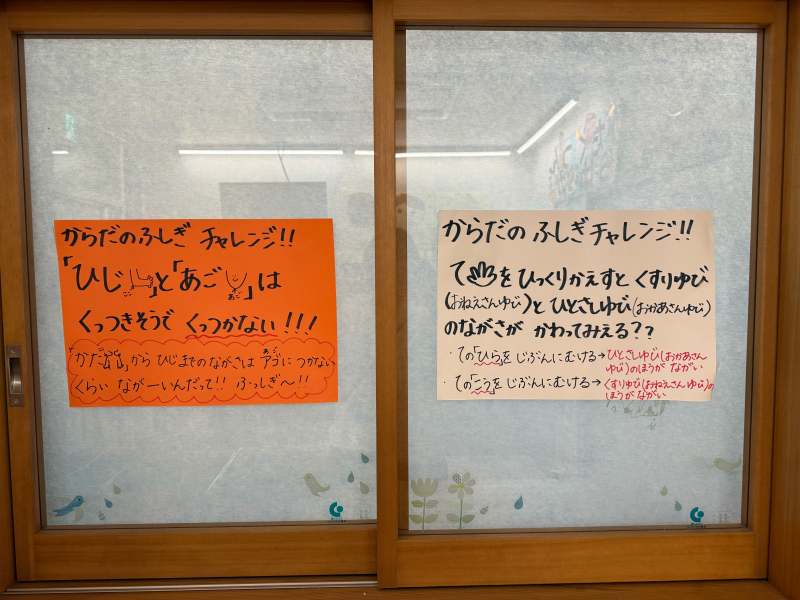 からだのふしぎ チャレンジ!!
「ひじ」と「あご」は
あご
くっつきそうで くっつかない!!!
「かた」から ひじまでのながさは アゴにつかない
あご
くらい ながーいんだって!! ふっしぎ〜!!
からだの ふしぎチャレンジ!!
てをひっくりかえすと くすりゆび
(おねえさんゆび)と ひとさしゆび(おかあさんゆび)
のながさが かわってみえる??
・ての「ひら」を じぶんにむける→ひとさしゆび(おかあさん
ゆび)のほうが ながい
・ての「こう」を じぶんにむける→くすりゆび(おねえさんゆび)の
ほうがながい